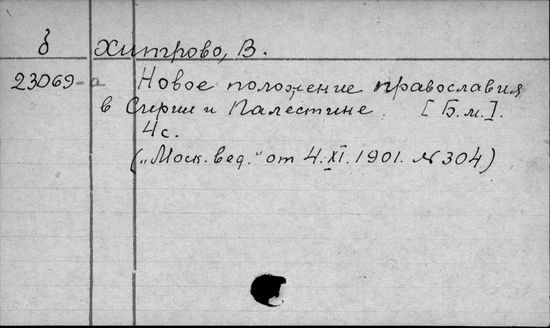 б Хитрово, В.
23069-а Новое положение православия
в Сирии и Палестине. [Б.м.].
4 с.
(„Моск. вед." от 4.XI.1901. №304)